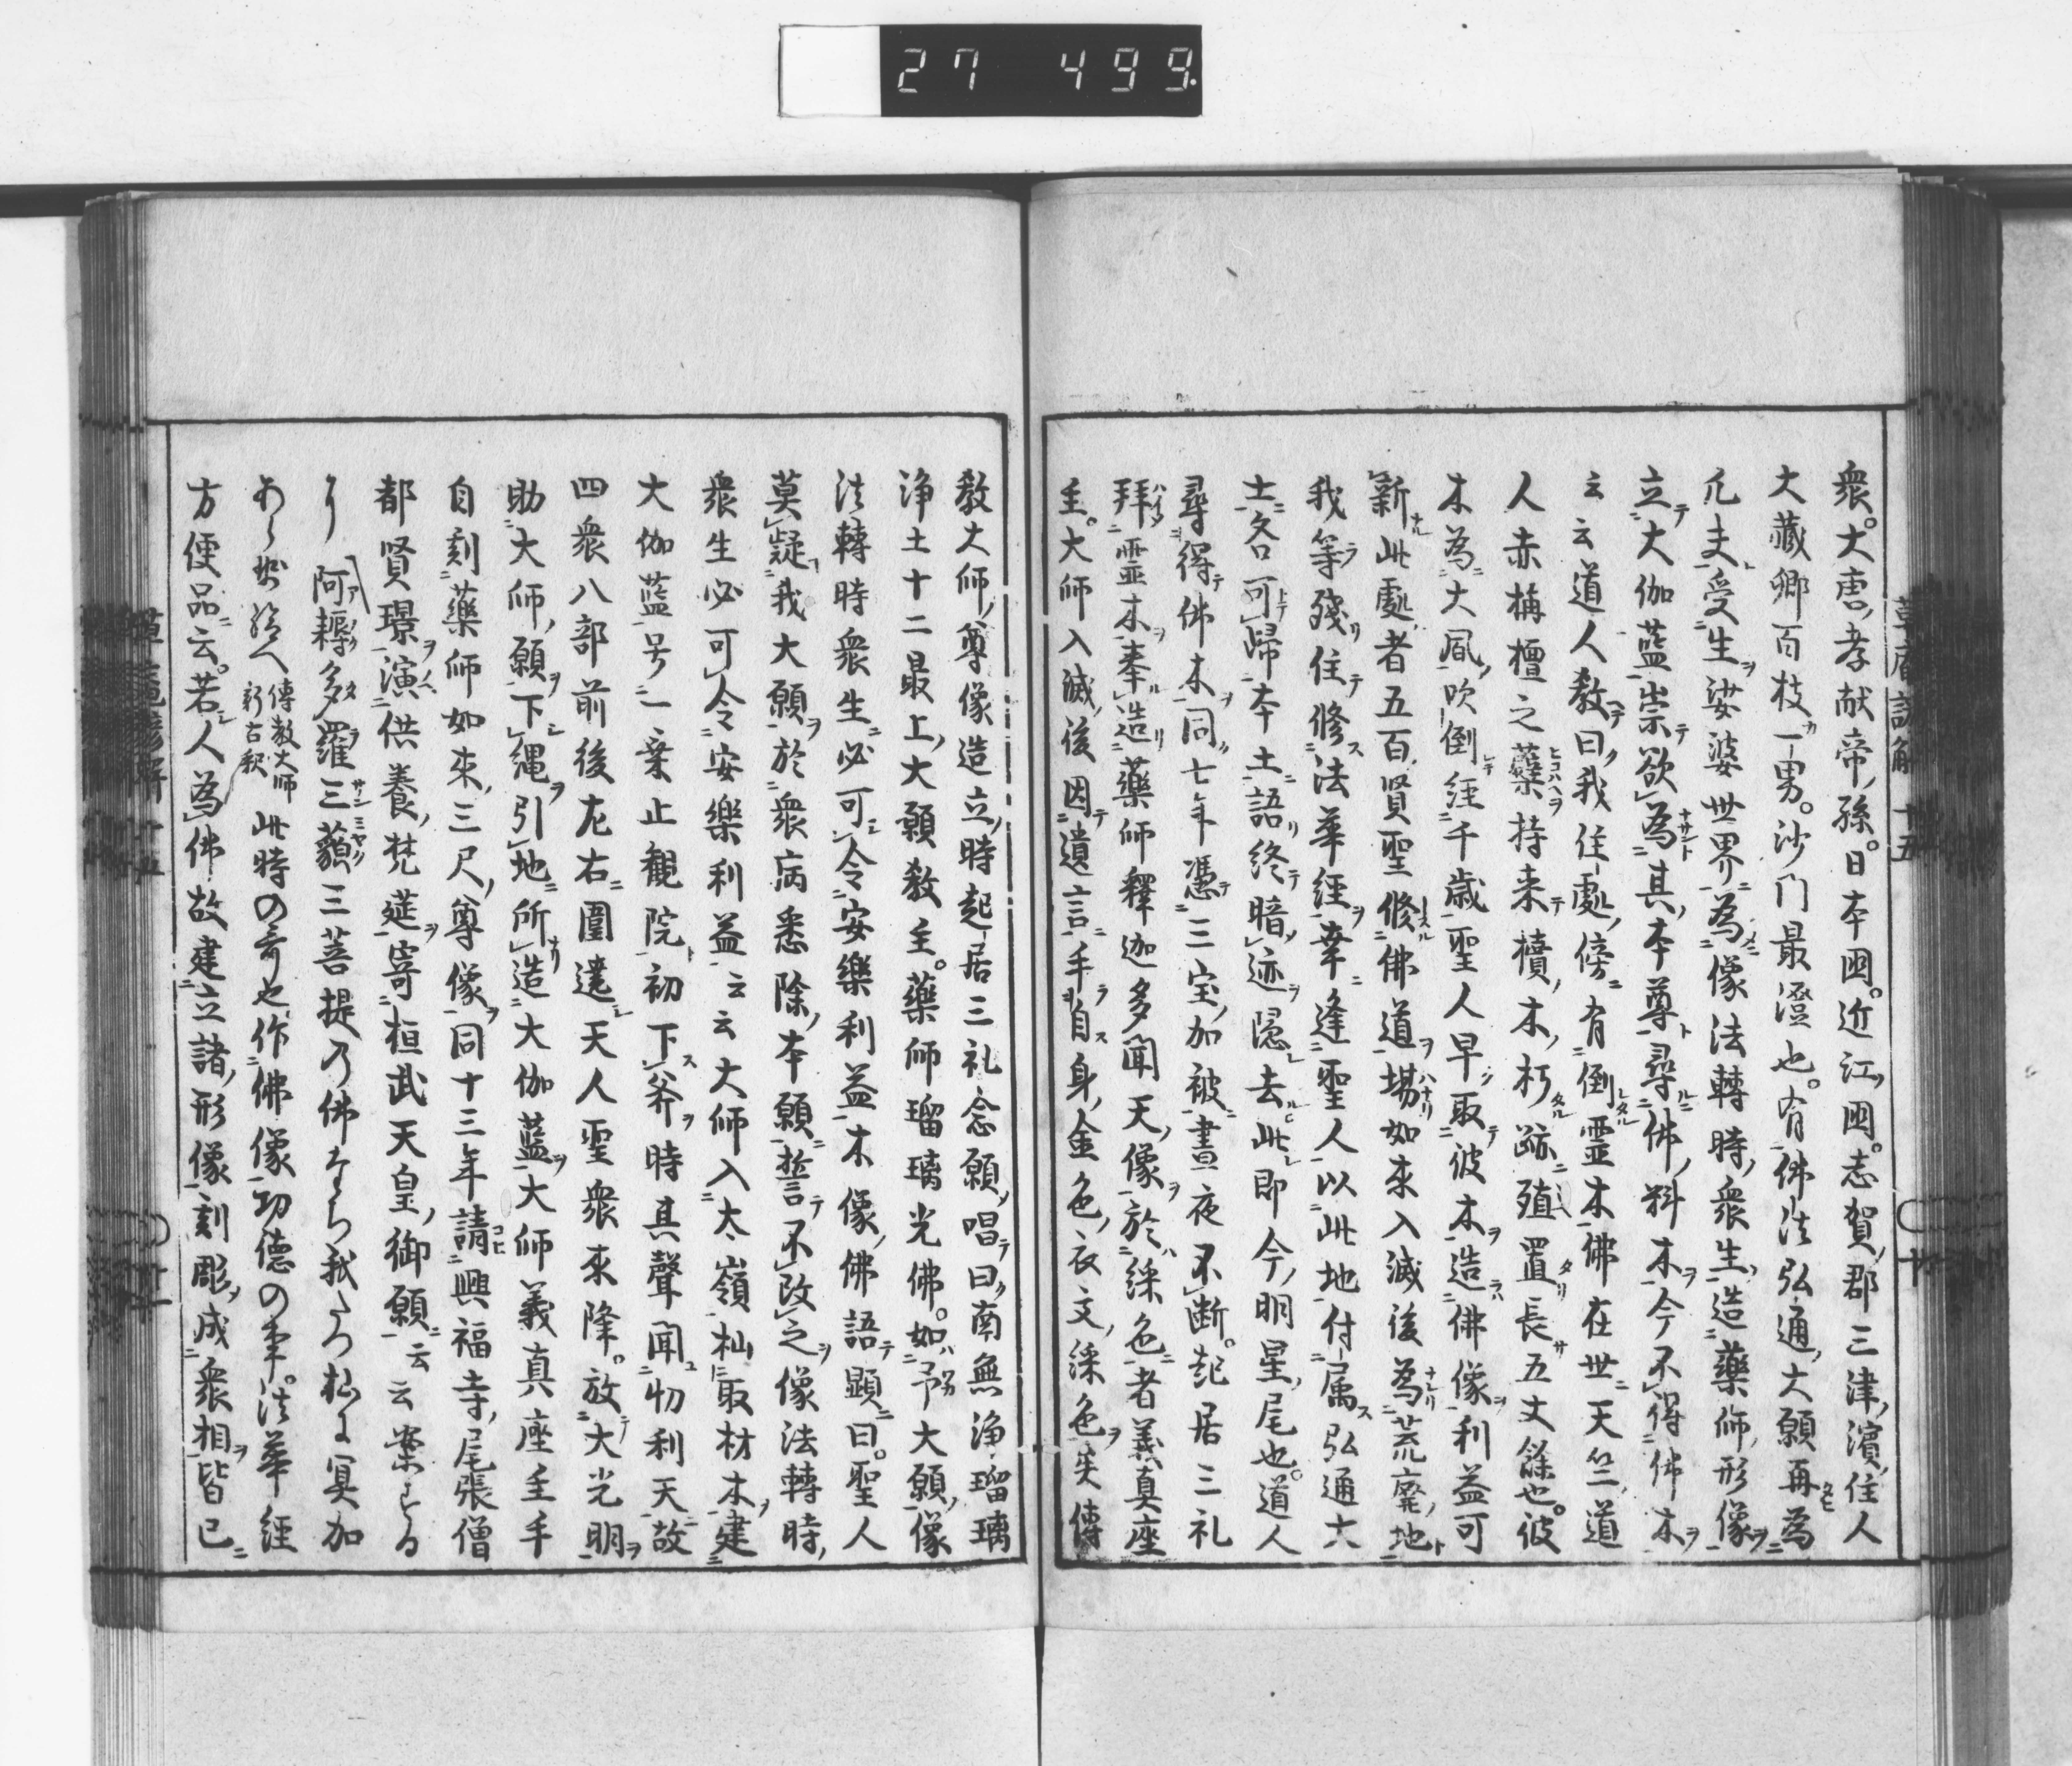 27 499.
衆。大唐孝献帝孫。日本国。近江国。志賀郡三津濱住人
大蔵卿百枝一男。沙门最澄也。有佛法弘通大願再為
凡夫受生娑婆世界為像法轉時衆生造藥師形像
立大伽藍崇欲為其本尊尋佛料木今不得佛木
云云道人教曰我住處傍有倒靈木佛在世天竺道
人赤栴檀之蘖持来櫝木朽跡殖置長五丈餘也。彼
木為大風吹倒経千歳聖人早取彼木造佛像利益可
新此處者五百賢聖修佛道場如来入滅後為荒廃地
我等殘住修法華經幸逢聖人以此地付属弘通大
士各可帰本土語終暗迹隠去此即今明星尾也。道人
尋得佛木同七年憑三宝加被晝夜不断。起居三礼
拜靈木奉造藥師釋迦多聞天像於綵色者義真座
主。大師入滅後因遺言手自身金色衣文綵色矣傳
教大師尊像造立時起居三礼念願唱曰南無浄瑠璃
浄土十二最上大願教主。藥師瑠璃光佛。如予大願像
法轉時衆生必可令安樂利益木像佛語顕曰。聖人
莫疑我大願於衆病悉除本願誓不改之像法轉時
衆生必可令安樂利益云云大師入大嶺杣取材木建
大伽藍号一乗止觀院初下斧時其聲聞忉利天故
四衆八部前後左右圍遶天人聖衆来降。放大光明
助大師願下縄引地所造大伽藍大師義真座主手
自刻藥師如来三尺尊像同十三年請興福寺尾張僧
都賢璟演供養梵莚寄桓武天皇御願云云案する
り 阿耨多羅三藐三菩提乃佛たち我たつ杣に冥加
あらせ給へ 傳教大師 新古釈 此時の哥也作佛像功德の事。法華経
方便品云。若人為佛故建立諸形像刻彫成衆相皆已